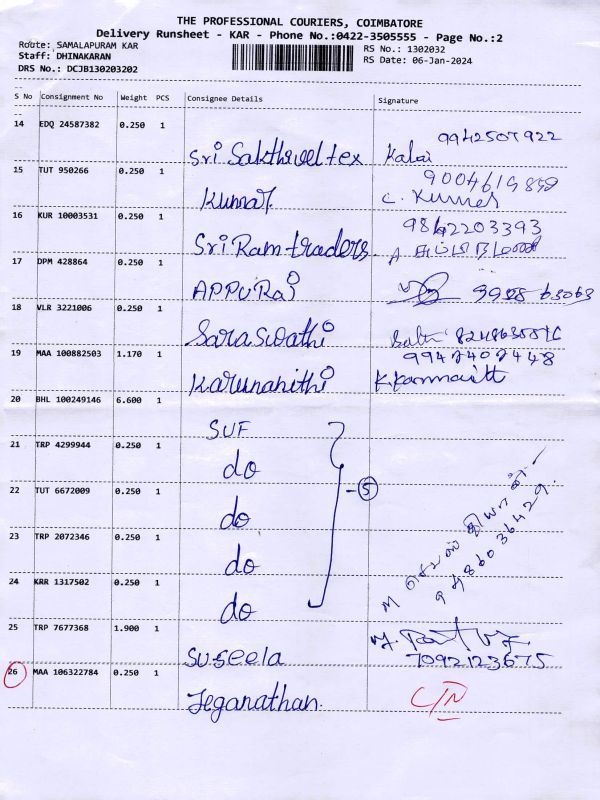 THE PROFESSIONAL COURIERS, COIMBATORE
Delivery Runsheet - KAR - Phone No.:0422-3505555 - Page No.:2
Route: SAMALAPURAM KAR
RS No.: 1302032
Staff: DHINAKARAN
RS Date: 06-Jan-2024
DRS No.: DCJB130203202
S No Consignment No Weight PCS Consignee Details Signature
14 EDQ 24587382 0.250 1
9942507922
Sri Sakthivel tex Kalai
15 TUT 950266 0.250 1
Kumar C. Kumar
16 KUR 10003531 0.250 1
9842203393
Sri Ram traders
17 DPM 428864 0.250 1
APPURaj
18 VLR 3221006 0.250 1
Saraswathi
19 MAA 100882503 1.170 1
9947407448
Karunanithi
20 BHL 100249146 6.600 1
SUF
21 TRP 4299944 0.250 1
do
- 5
22 TUT 6672009 0.250 1
do
23 TRP 2072346 0.250 1
do
24 KRR 1317502 0.250 1
do
25 TRP 7677368 1.900 1
Suseela 7092123675
26 MAA 106322784 0.250 1
Jeganathan C/N